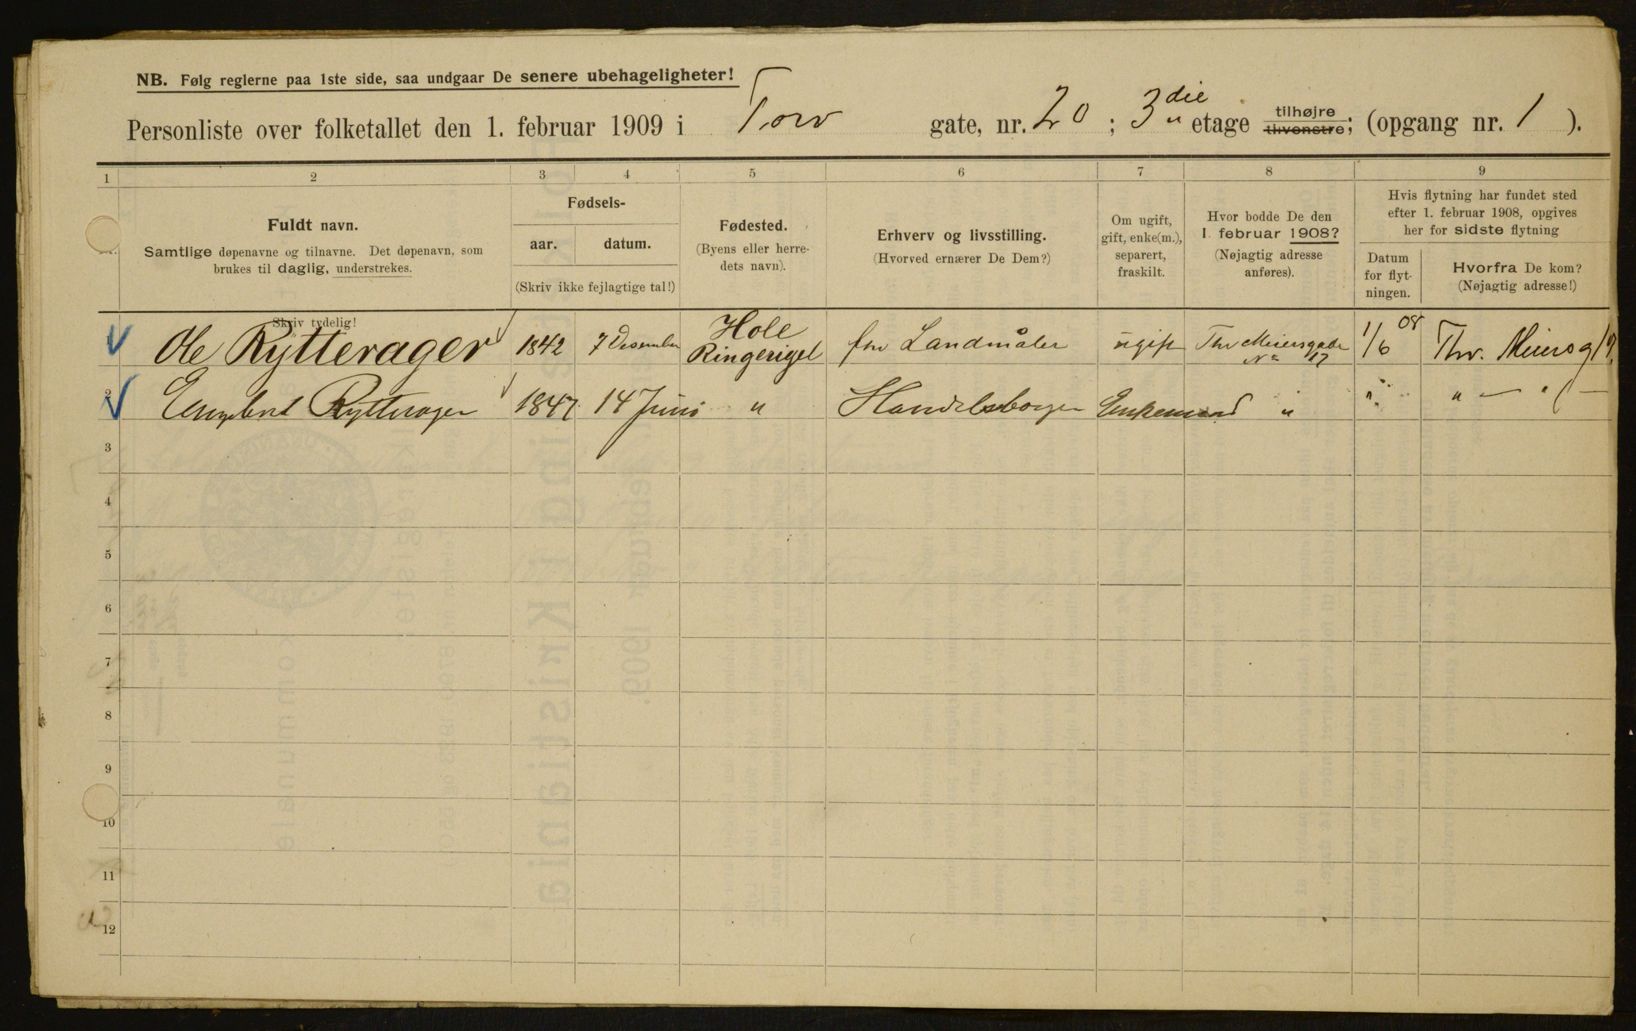 NB. Følg reglerne paa 1ste side, saa undgaar De senere ubehageligheter!
Personliste over folketallet den 1. februar 1909 i Torv gate, nr. 20; 3die etage tilhøjre tilvenstre; (opgang nr. 1).
1 2 3 4 5 6 7 8 9
Fuldt navn.
Samtlige døpenavne og tilnavne. Det døpenavn, som
brukes til daglig, understrekes.
Skriv tydelig!
Fødsels-
aar. datum.
(Skriv ikke fejlagtige tal!)
Fødested.
(Byens eller herre-
dets navn).
Erhverv og livsstilling.
(Hvorved ernærer De Dem?)
Om ugift,
gift, enke(m.),
separert,
fraskilt.
Hvor bodde De den
1. februar 1908?
(Nøjagtig adresse
anføres).
Hvis flytning har fundet sted
efter 1. februar 1908, opgives
her for sidste flytning
Datum
for flyt-
ningen.
Hvorfra De kom?
(Nøjagtig adresse!)
Ole Rytterager 1842 7 Desember Hole Ringerige fhv Landmåler ugift Thv Meiersgade No 17 1/6 08 Thv. Meiersg 17.
2 Engebret Rytterager 1847 14 Juni " Handelsborger Enkemand " " " — " —
3
4
5
6
7
8
9
10
11
12